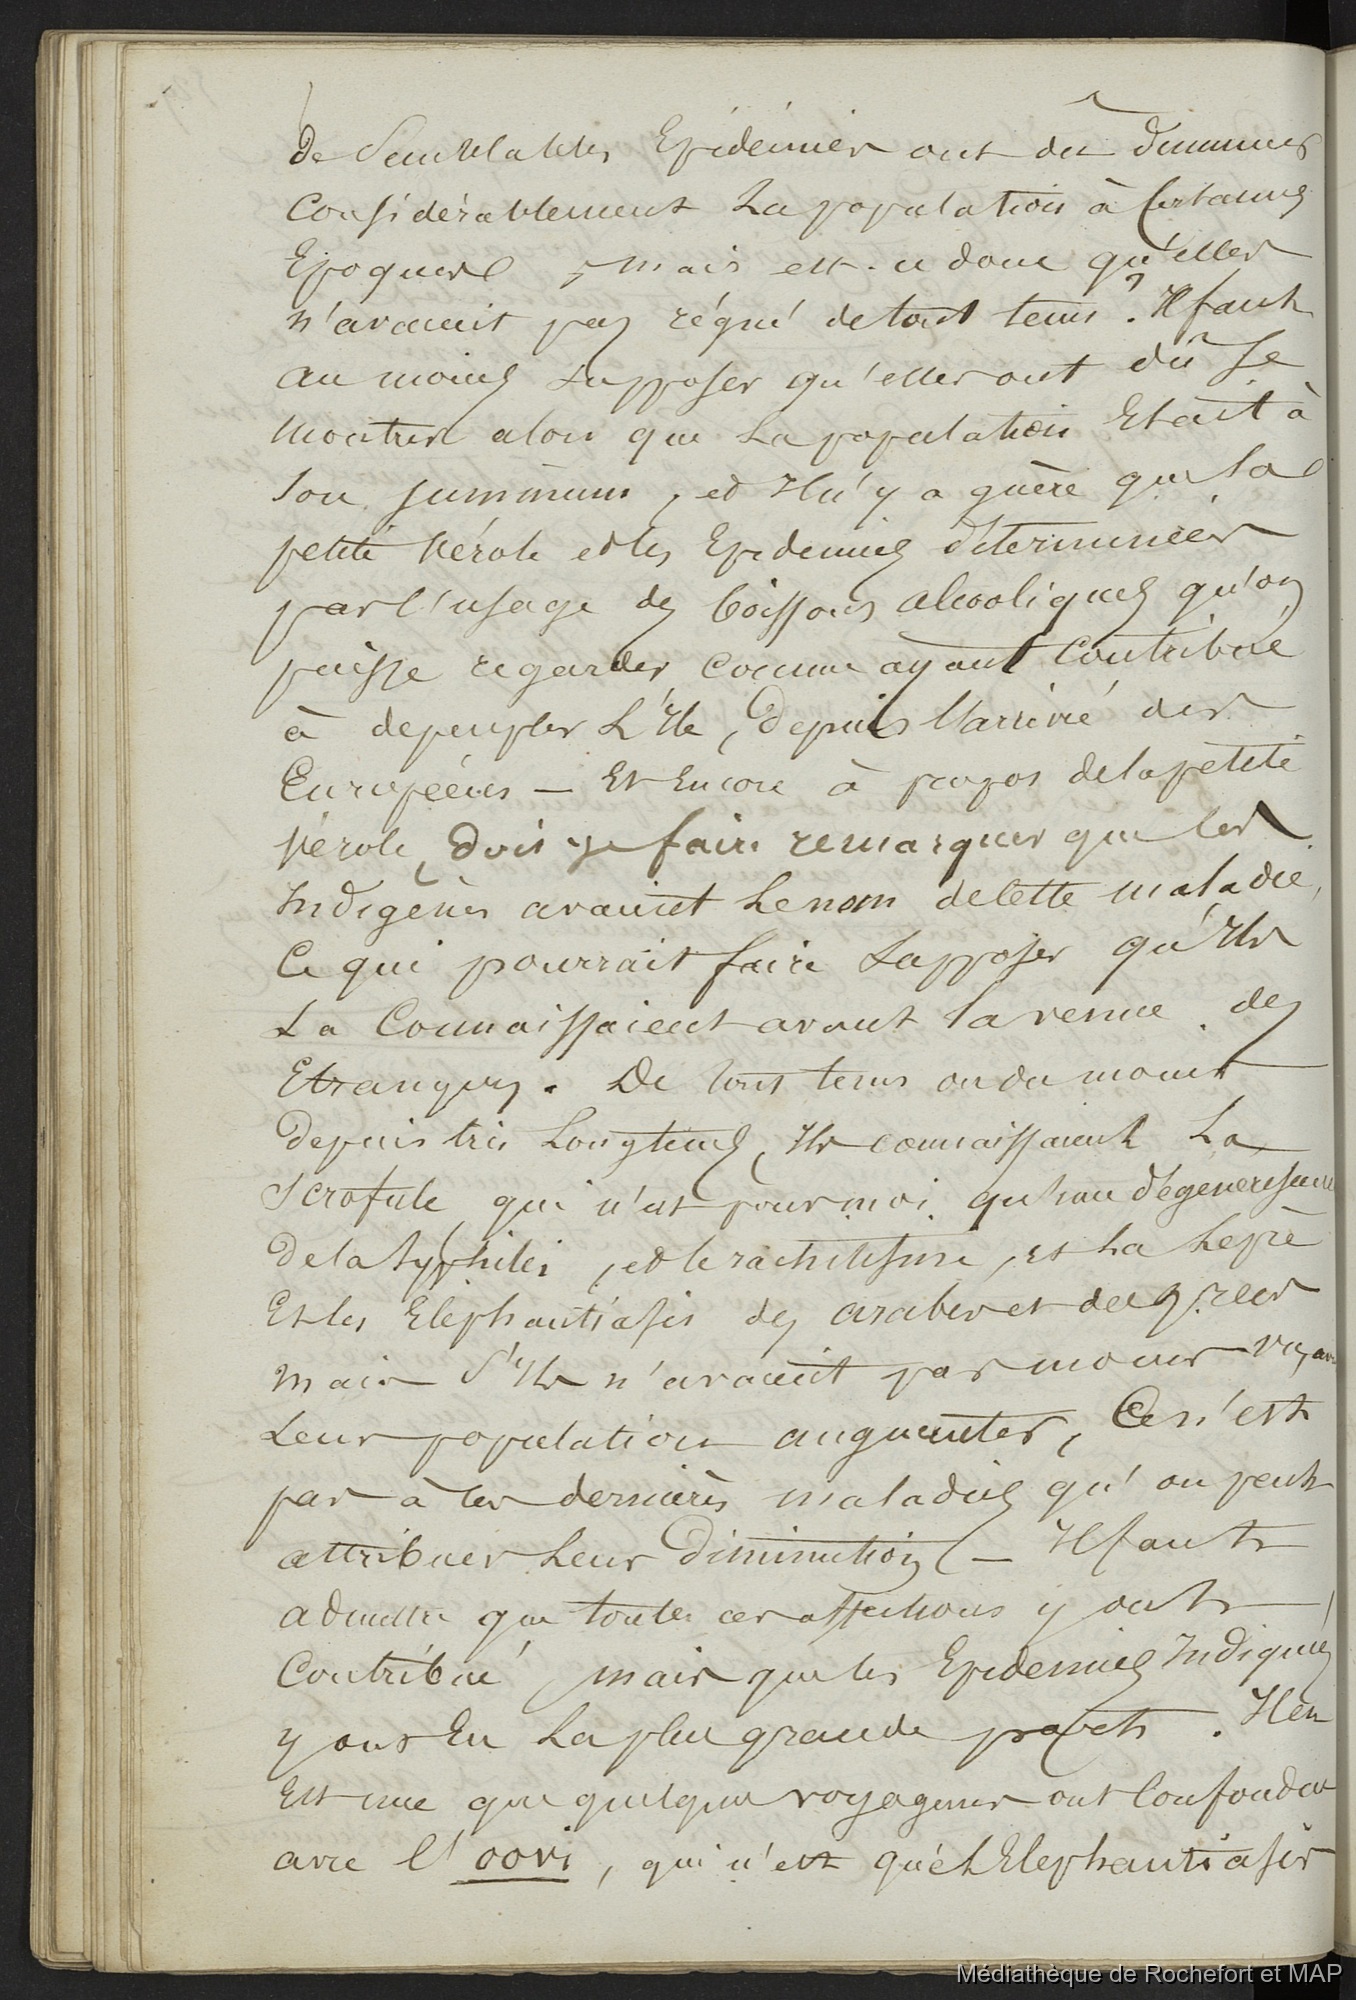 de Semblables Epidémies ont du diminuer
Considérablement La population à Certaines
Epoques, mais est-ce donc qu'elles
n'avaient pas régné de tout tems ? Il faut
au moins supposer qu'elles ont dû se
montrer alors que la population Etait à
son summum, et Il n'y a guère que la
petite vérole et les Epidemies déterminées
par l'usage des boissons alcooliques qu'on
puisse regarder comme ayant Contribué
à depeupler L'Ile, depuis l'arrivé des
Européens — Et Encore à propos de la petite
vérole, dois-je faire remarquer que les
Indigènes avaient le nom de cette maladie,
Ce qui pourrait faire supposer qu'Ils
La Connaissaient avant la venue des
Etrangers. De tous tems ou du moins
depuis très Longtems, Ils connaissaient La
Scrofule, qui n'est pour moi qu'une dégénérescence
de la syphilis, et le rachitisme, et La Lèpre
Et les Elephantiasis des arabes et des grecs
mais S'Ils n'avaient pas moins vu
Leur population augmenter, Ce n'est
pas à ces dernières maladies qu'on peut
attribuer Leur diminution — Il faut
admettre que toutes ces affections y ont
Contribué, mais que les Epidemies Indiquées
y ont Eu La plus grande part. Il en
Est une que quelques voyageurs ont Confondue
avec l'oovi, qui n'est que L'Elephantiasis
Médiathèque de Rochefort et MAP